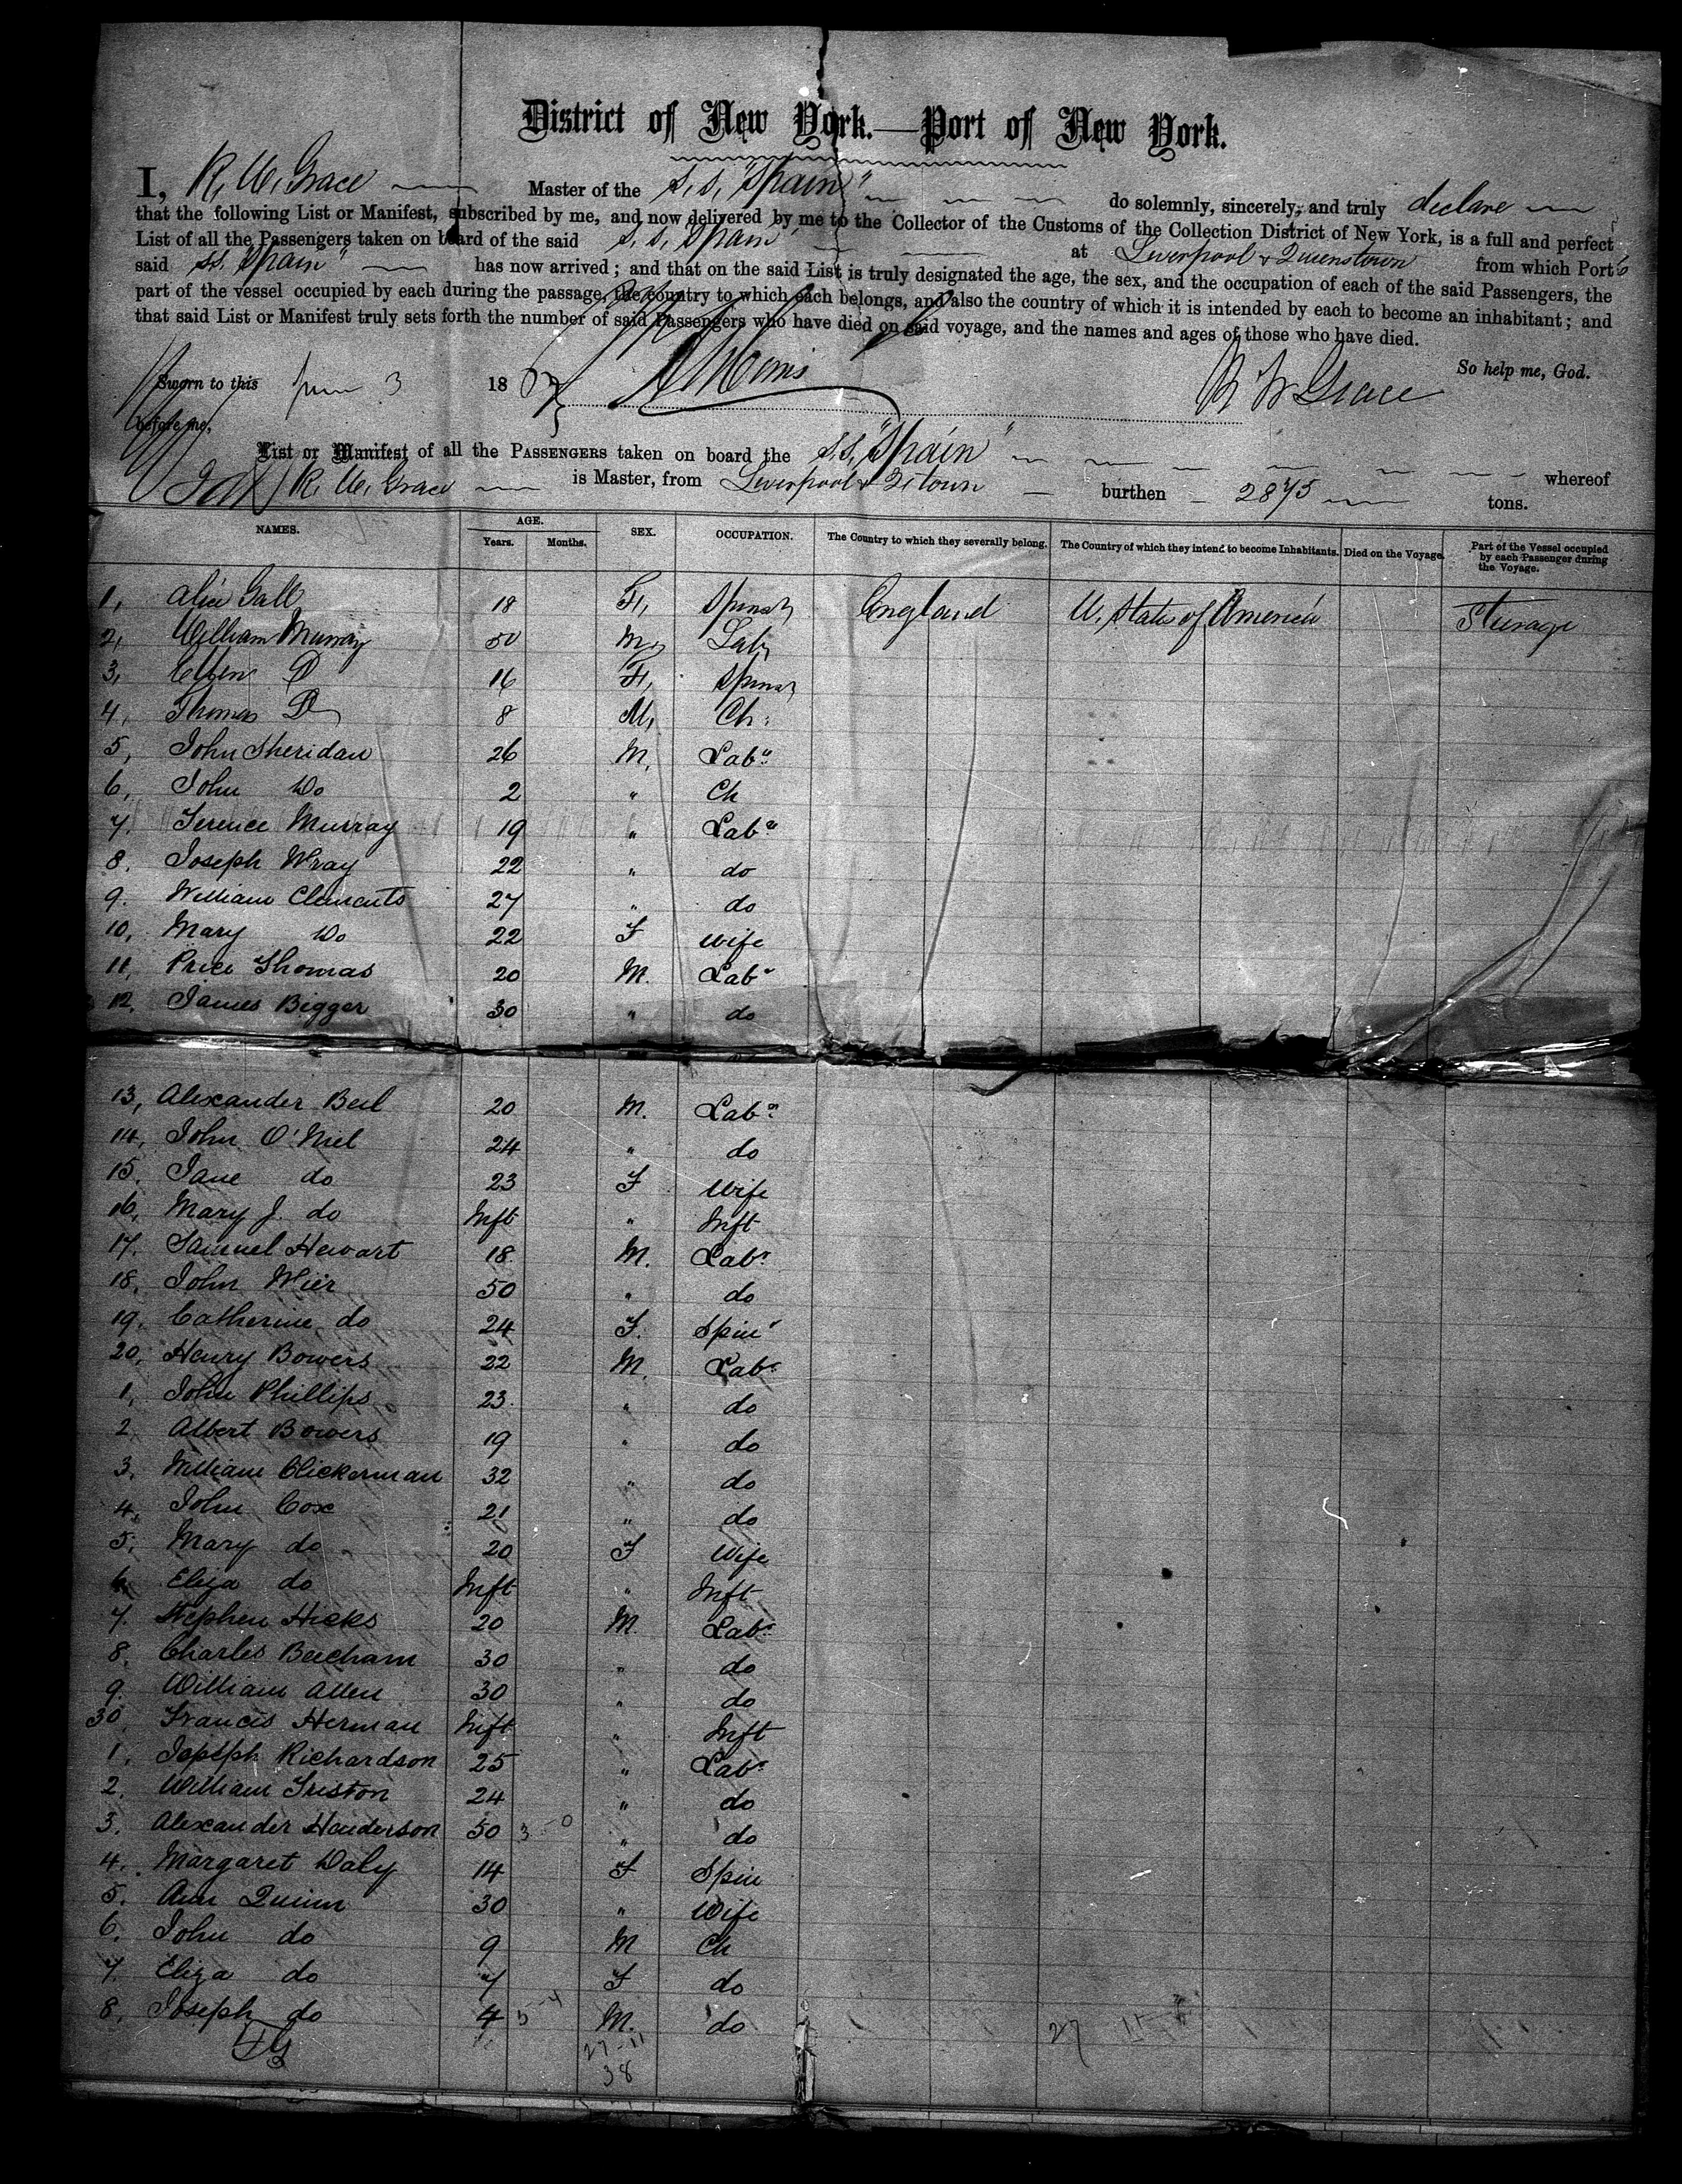 District of New York.—Port of New York.
I, R. W. Grace Master of the S.S. "Spain" do solemnly, sincerely, and truly declare
that the following List or Manifest, subscribed by me, and now delivered by me to the Collector of the Customs of the Collection District of New York, is a full and perfect
List of all the Passengers taken on board of the said S.S. Spain at Liverpool & Queenstown from which Port
said SS. Spain" has now arrived; and that on the said List is truly designated the age, the sex, and the occupation of each of the said Passengers, the
part of the vessel occupied by each during the passage, the country to which each belongs, and also the country of which it is intended by each to become an inhabitant; and
that said List or Manifest truly sets forth the number of said Passengers who have died on said voyage, and the names and ages of those who have died.
So help me, God.
Sworn to this June 3 18 R W Grace
before me,
List or Manifest of all the PASSENGERS taken on board the S.S. "Spain" whereof
R. W. Grace is Master, from Liverpool & Q. town burthen 2875 tons.
NAMES. AGE. Years. Months. SEX. OCCUPATION. The Country to which they severally belong. The Country of which they intend to become Inhabitants. Died on the Voyage. Part of the Vessel occupied by each Passenger during the Voyage.
1, Alice Gall 18 F, Spinstr England U. States of America Steerage
2, William Murray 50 M, Labr
3, Ellen D 16 F, Spinstr
4, Thomas D 8 M, Ch:
5, John Sheridan 26 M, Labr
6, John Do 2 " Ch
7. Terence Murray 19 " Labr
8. Joseph Wray 22 " do
9. William Clements 27 " do
10, Mary Do 22 F Wife
11, Price Thomas 20 M. Labr
12. James Bigger 30 " do
13, Alexander Beil 20 M. Labr
14, John O'Niel 24 " do
15. Jane do 23 F Wife
16, Mary J. do Inft " Inft
17. Samuel Hewart 18. M. Labr
18, John Wier 50 " do
19. Catherine do 24 F. Spinr
20, Henry Bowers 22 M. Labr
1, John Phillips 23. " do
2 Albert Bowers 19 " do
3. William Clickerman 32 " do
4. John Cox 21 " do
5. Mary do 20 F Wife
6. Eliza do Inft " Inft
7. Stephen Hicks 20 M. Labr
8. Charles Beecham 30 " do
9. William Allen 30 " do
30, Francis Herman Inft " Inft
1, Joseph Richardson 25 " Labr
2. William Friston 24 " do
3. Alexander Henderson 50 3-0 " do
4. Margaret Daly 14 F Spin
5. Ann Quinn 30 " Wife
6. John do 9 M Ch
7. Eliza do 7 F do
8. Joseph do 4 5-4 M. do 27
27-11
38